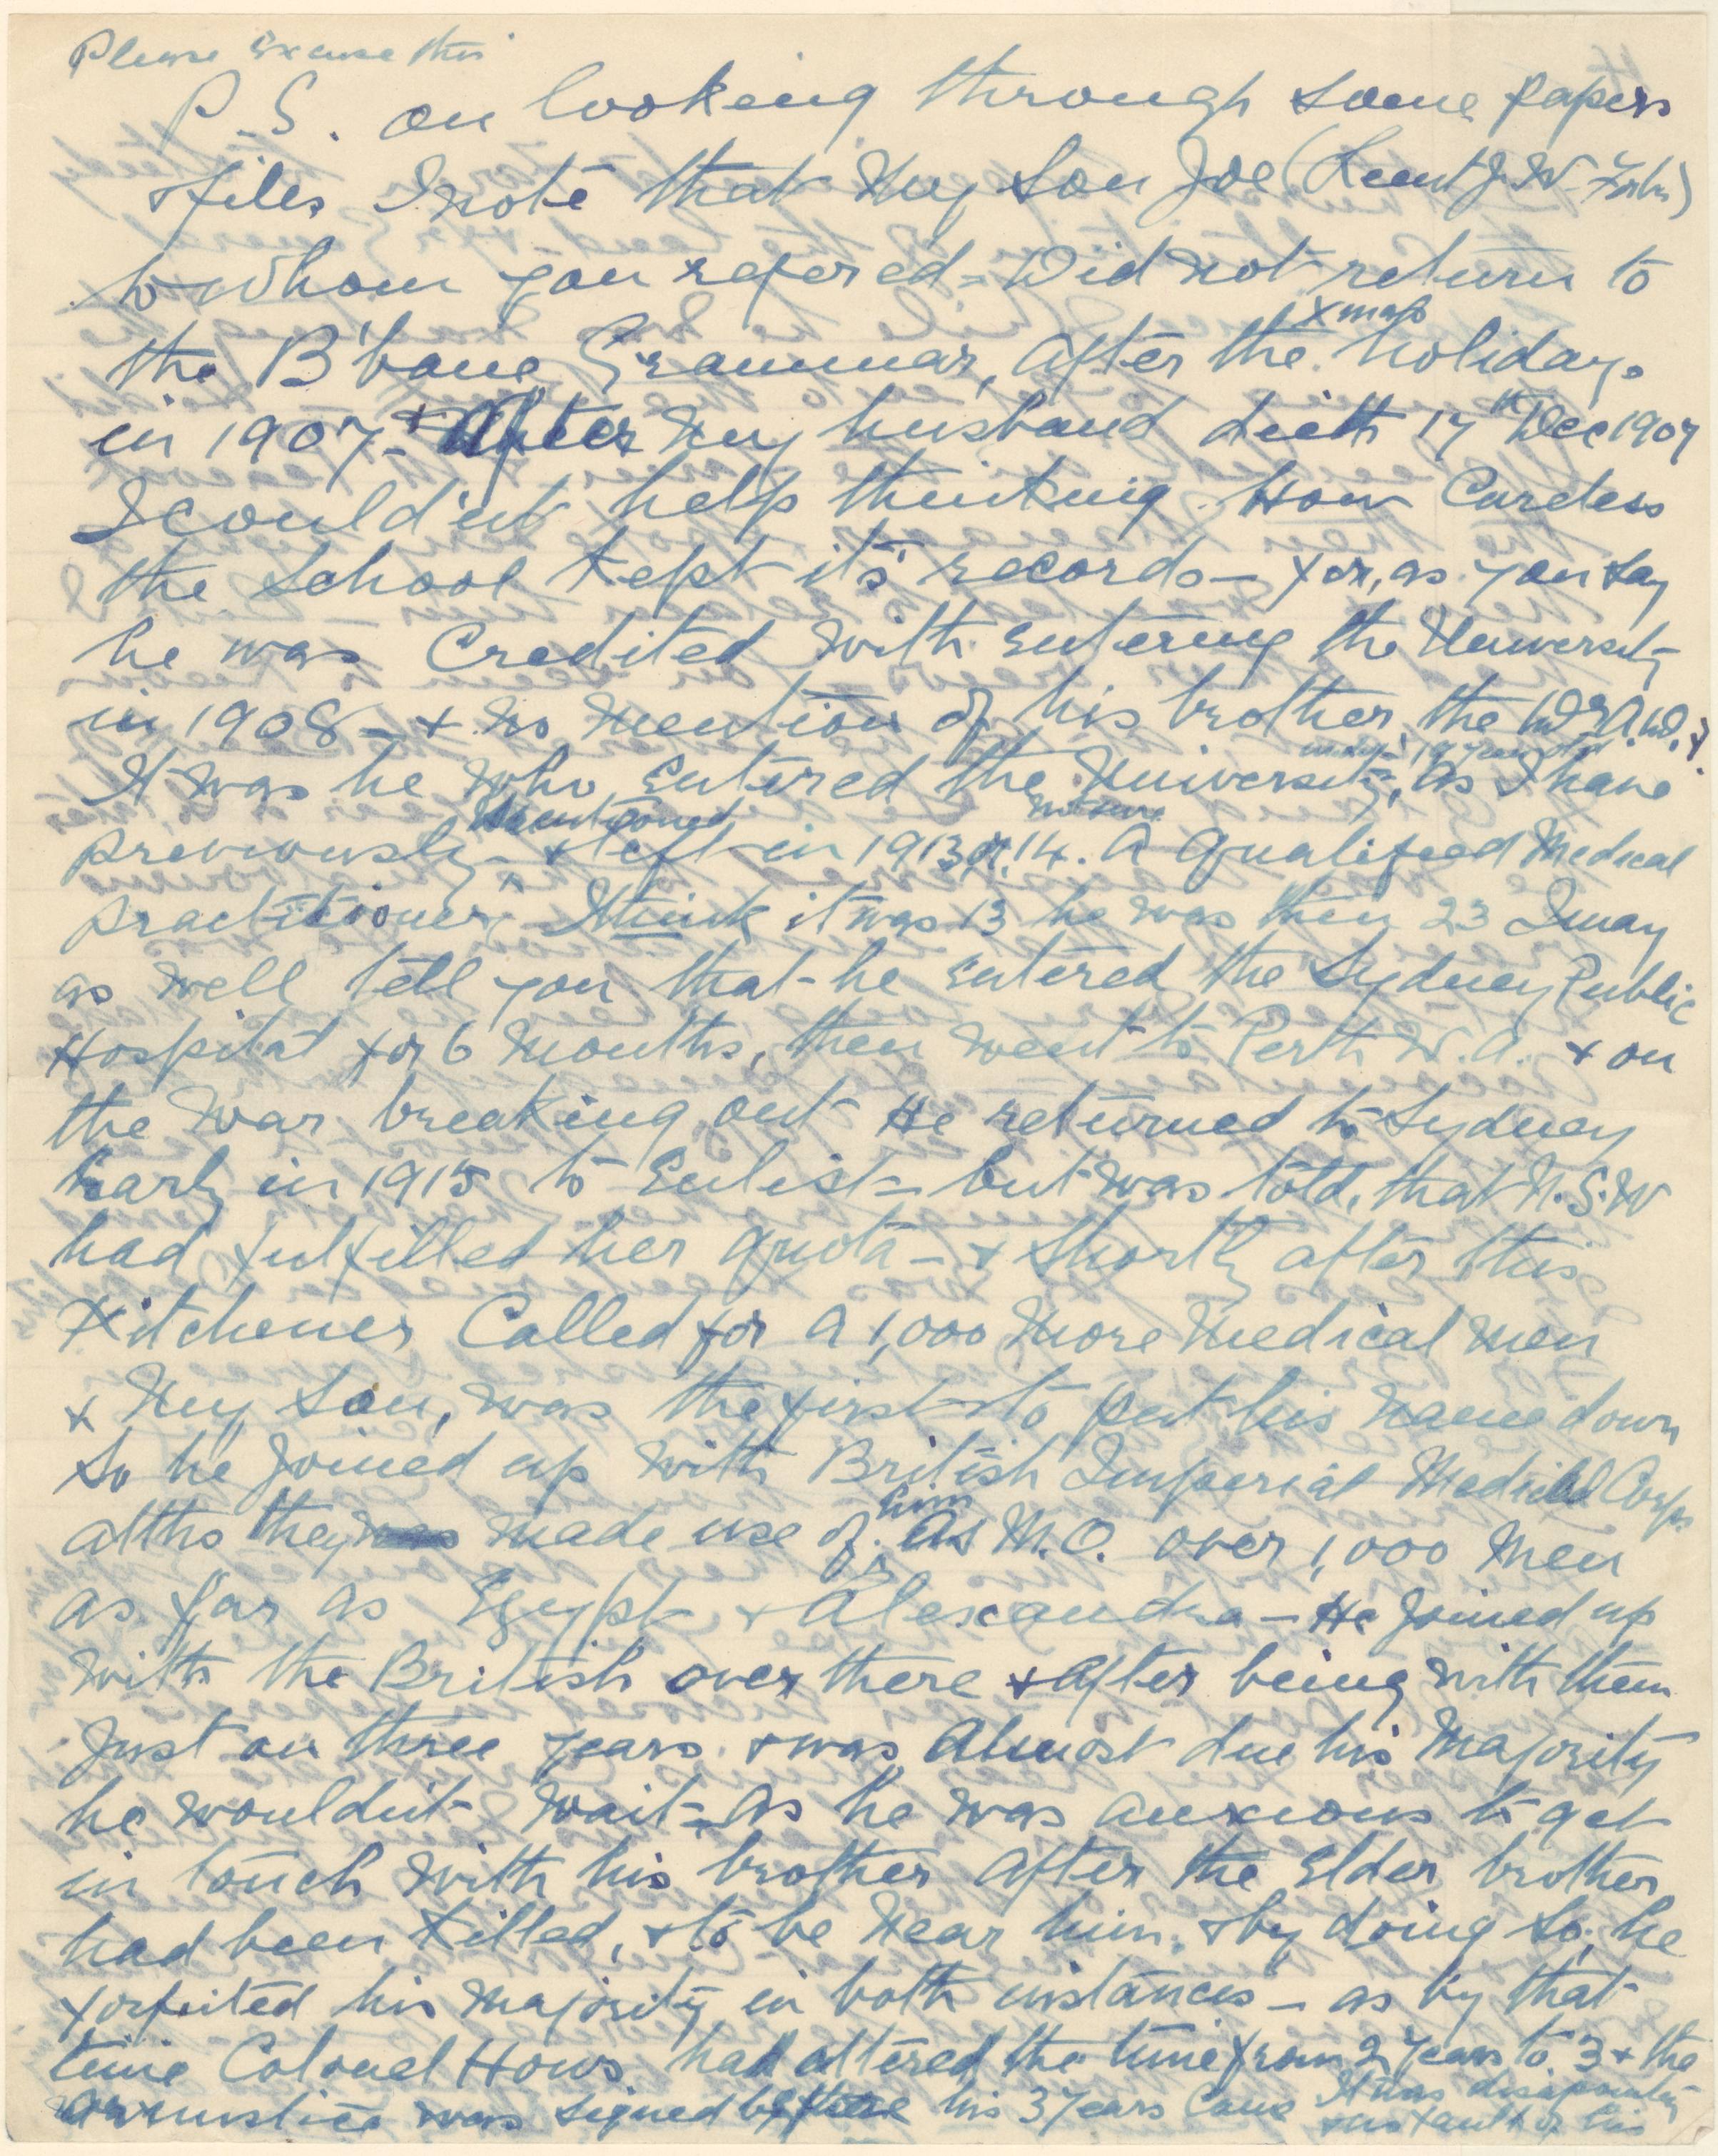 Please excuse this
P.S. on looking through some papers
& files I note that my son Joe (Lieut J. W.
to whom you refered = Did not return to
the B'bane Grammar, after the Xmas holidays
in 1907 - & After my husband death 17th Dec 1907
I could'nt help thinking How Careless
the School kept it's records - for, as you say
he was Credited with entering the University
in 1908 - & no mention of his brother, the
It was he who entered the University, only 19 years old as I have
previously mentioned - & left in 1913 or 14. not sure A qualified Medical
practitioner, I think it was 13 he was then 23 I may
as well tell you that - he entered the Sydney Public
Hospital for 6 months, then went to Perth W.A. & on
the war breaking out He returned to Sydney
Early in 1915 to Enlist - but was told, that N.S.W
had fulfilled her quota - & shortly after this
Kitchener Called for a 1,000 more Medical men
& my son, was the first to put his name down
So he joined up with British Imperial Medical Corps
altho they made use of him as M.O. over 1,000 men
as far as Egypt & Alexandra - He joined up
with the British over there & after being with them
Just on three years & was almost due his Majority
he wouldn't wait - as he was anxious to get
in touch with his brother after the Elder brother
had been killed, & to be near him. & by doing so, he
forfeited his majority in both instances - as by that
time Colonel Hows had altered the time from 2 years to 3 & the
armistice was signed before his 3 years Came It was disapointing